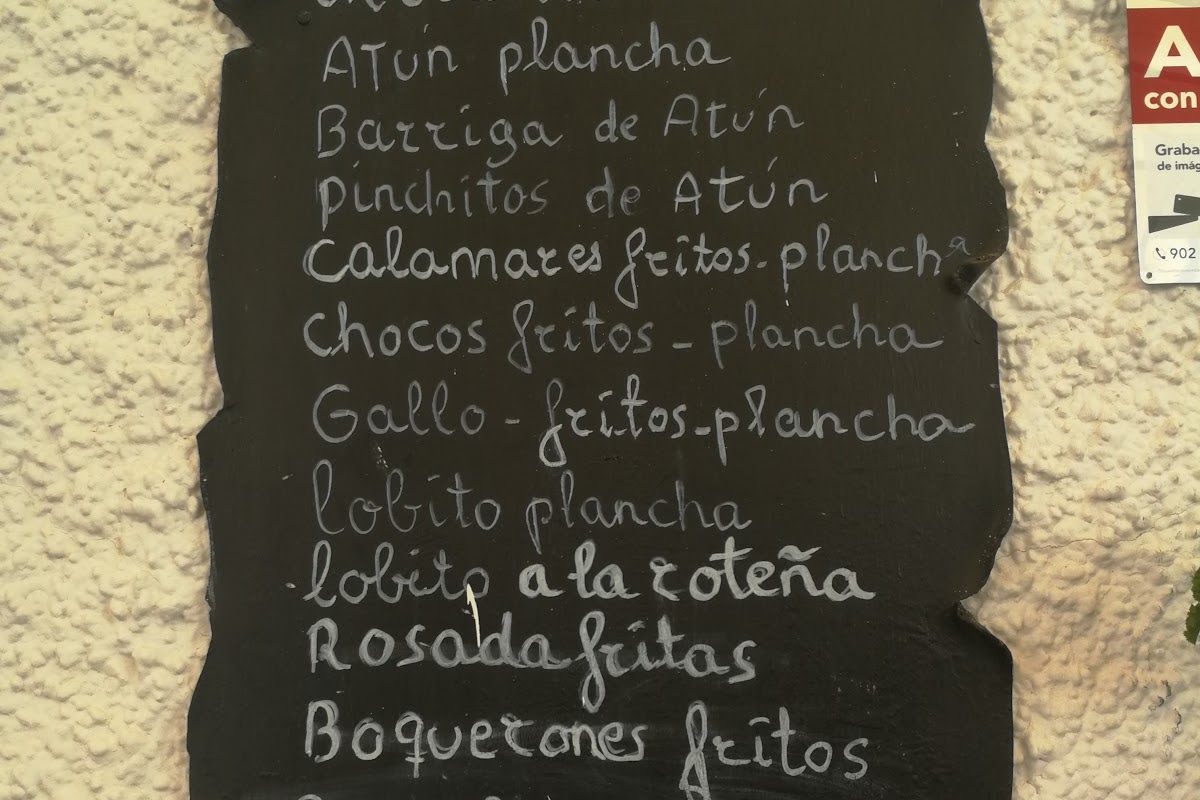 Atún plancha
Barriga de Atún
pinchitos de Atún
calamares fritos - plancha
chocos fritos - plancha
Gallo - fritos - plancha
lobito plancha
lobito a la roteña
Rosada fritas
Boquerones fritos
A
con
Graba
de imág
902